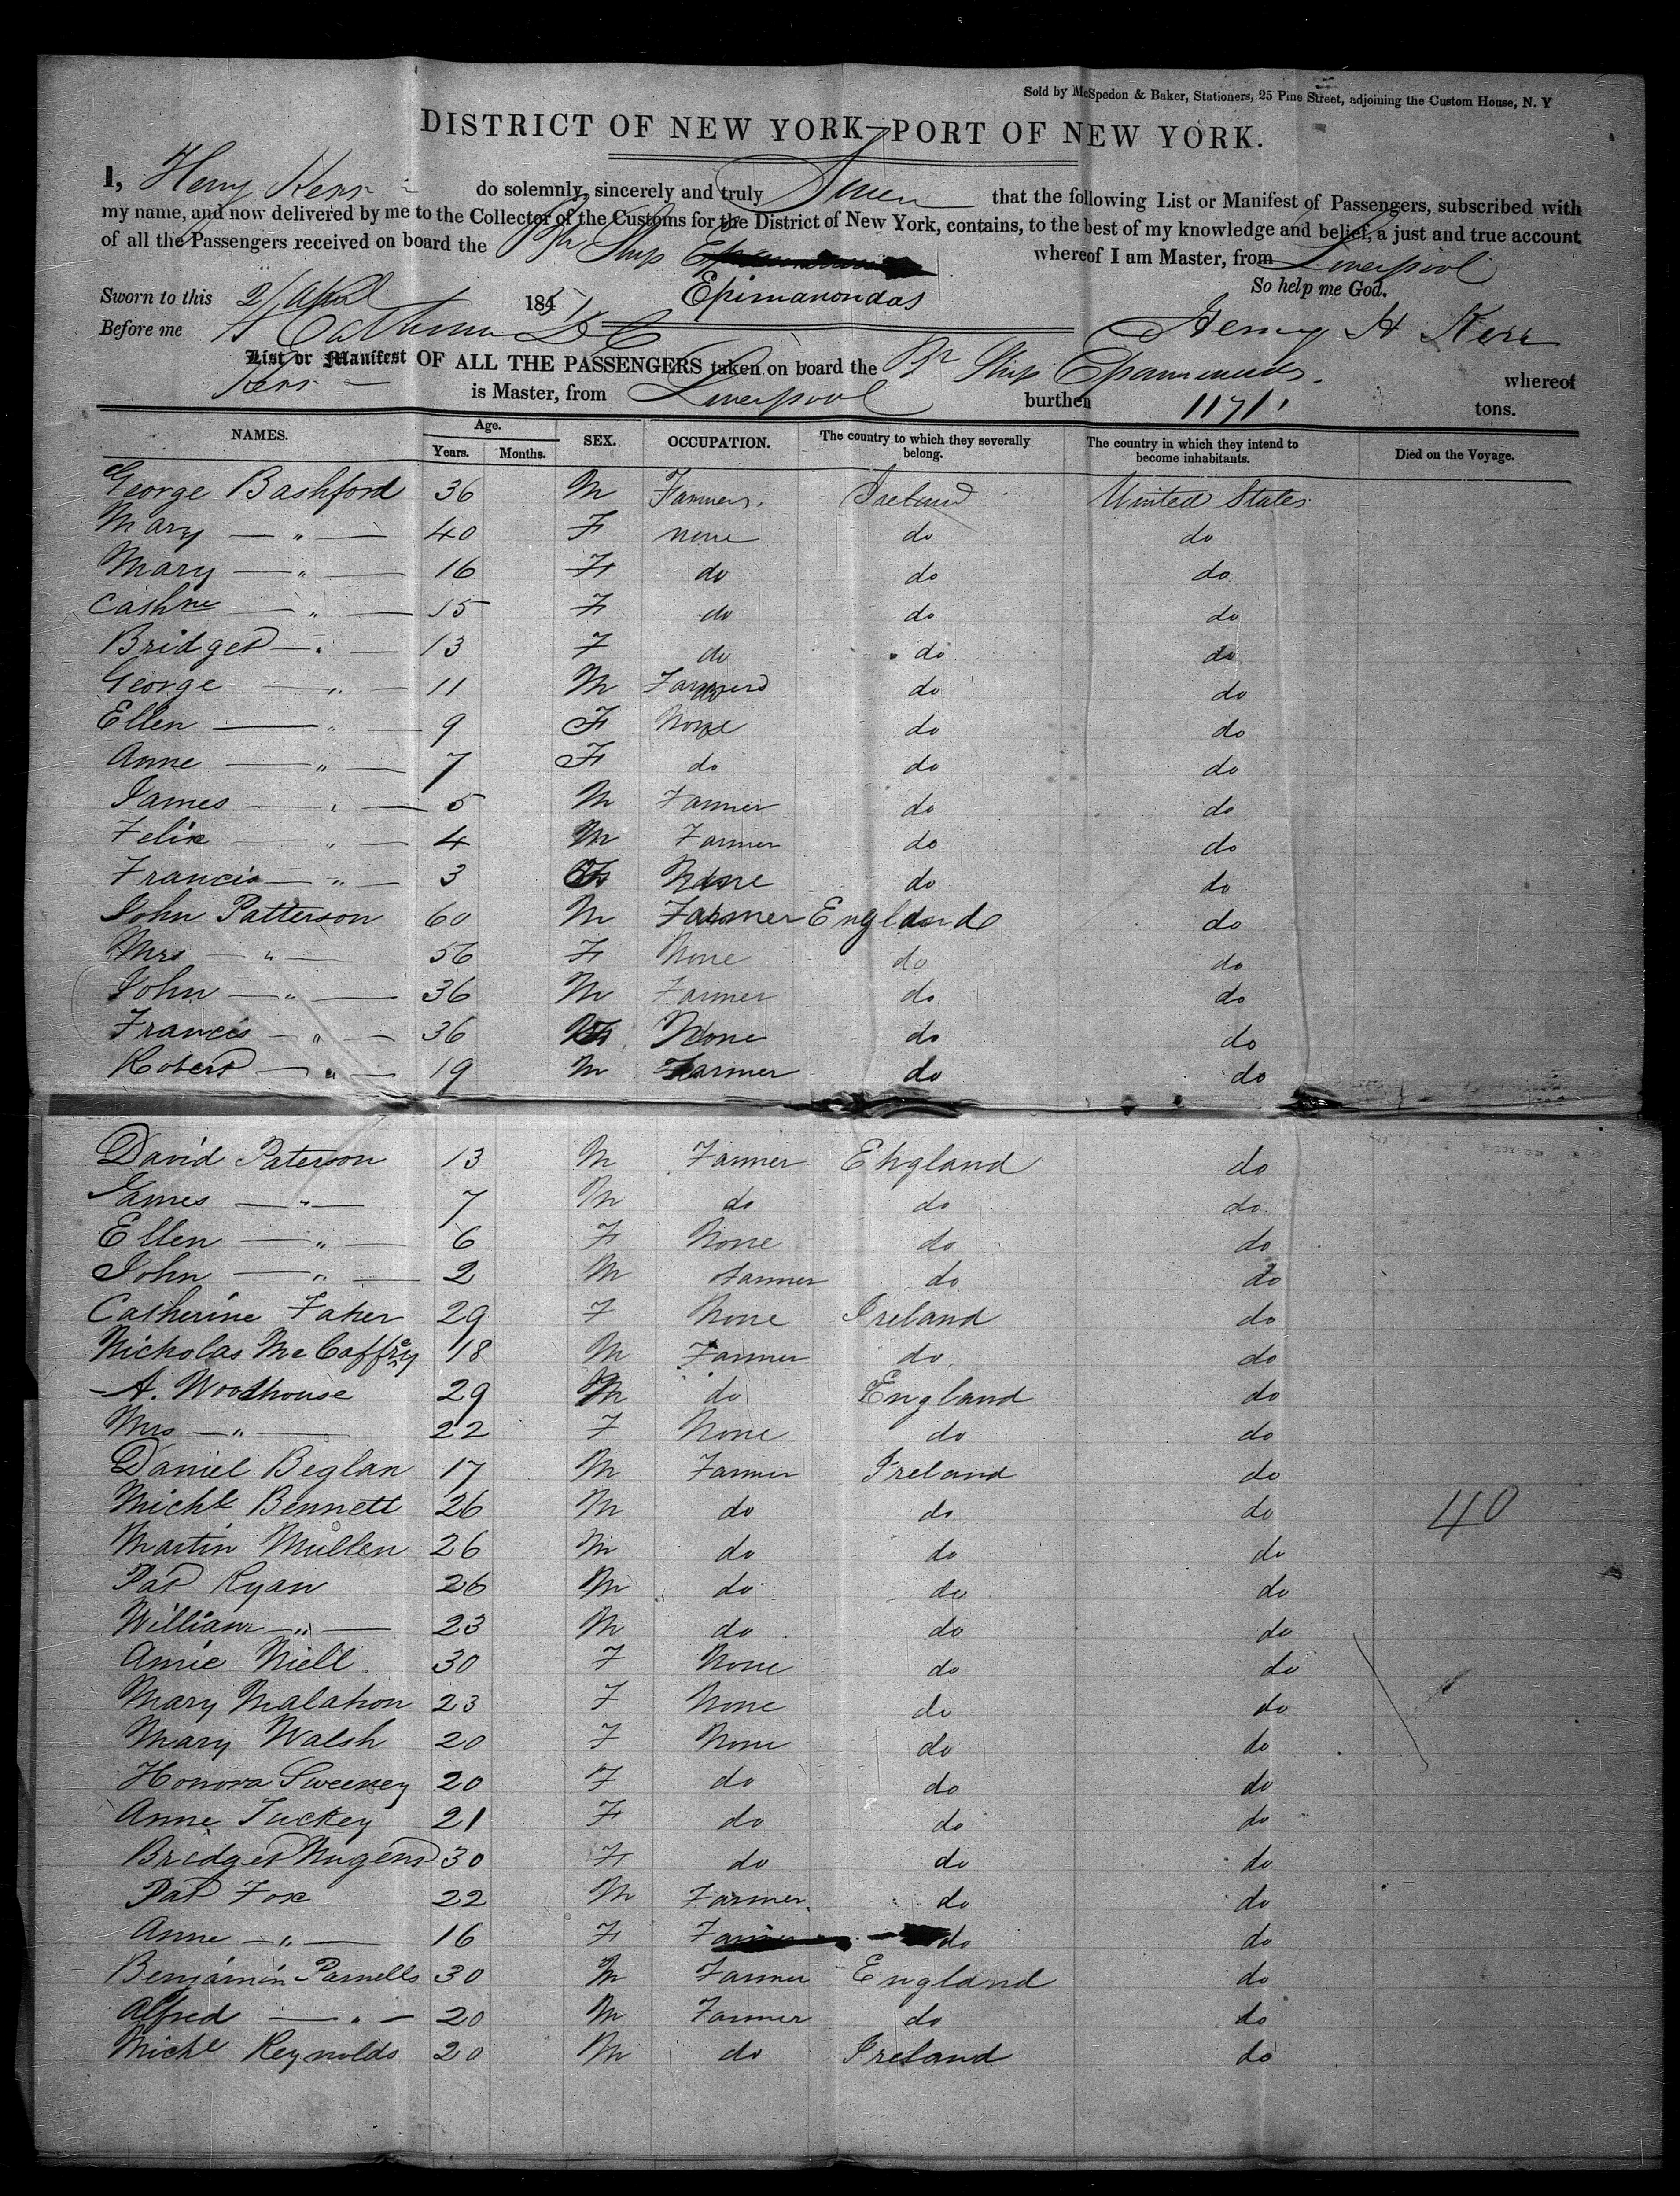 Sold by McSpedon & Baker, Stationers, 25 Pine Street, adjoining the Custom House, N. Y
DISTRICT OF NEW YORK—PORT OF NEW YORK.
I, Henry Kerr do solemnly, sincerely and truly Swear that the following List or Manifest of Passengers, subscribed with
my name, and now delivered by me to the Collector of the Customs for the District of New York, contains, to the best of my knowledge and belief, a just and true account
of all the Passengers received on board the Br Ship whereof I am Master, from Liverpool
Epimanondas
So help me God.
Sworn to this 2/ April 1851
Before me
Henry H Kerr
List or Manifest OF ALL THE PASSENGERS taken on board the Br Ship Epaminondas. whereof
Kerr is Master, from Liverpool burthen 1171 tons.
NAMES. Age. Years. Months. SEX. OCCUPATION. The country to which they severally belong. The country in which they intend to become inhabitants. Died on the Voyage.
George Bashford 36 M Farmer. Ireland United States
Mary — " — 40 F none do do
Mary — " — 16 F do do do
Cathne — " — 15 F do do do
Bridget — " — 13 F do do do
George — " — 11 M Farmer do do
Ellen — " — 9 F None do do
Anne — " — 7 F do do do
James — " — 5 M Farmer do do
Felix — " — 4 M Farmer do do
Francis — " — 3 F None do do
John Patterson 60 M Farmer England do
Mrs — " — 56 F None do do
John — " — 36 M Farmer do do
Francis — " — 36 F None do do
Robert — " — 19 M Farmer do do
David Paterson 13 M Farmer England do
James — " — 7 M do do do
Ellen — " — 6 F None do do
John — " — 2 M Farmer do do
Catherine Faher 29 F None Ireland do
Nicholas McCaffrey 18 M Farmer do do
A. Woodhouse 29 M do England do
Mrs — " — 22 F None do do
Daniel Beglan 17 M Farmer Ireland do
Michl Bennett 26 M do do do 40
Martin Mullen 26 M do do do
Pat Ryan 26 M do do do
William — " — 23 M do do do
Annie Niell 30 F None do do
Mary Malahon 23 F None do do
Mary Walsh 20 F None do do
Honora Sweeney 20 F do do do
Anne Tuckey 21 F do do do
Bridget Nugent 30 F do do do
Pat Fox 22 M Farmer do do
Anne — " — 16 F do do
Benjamin Parnells 30 M Farmer England do
Alfred — " — 20 M Farmer do do
Michl Reynolds 20 M do Ireland do